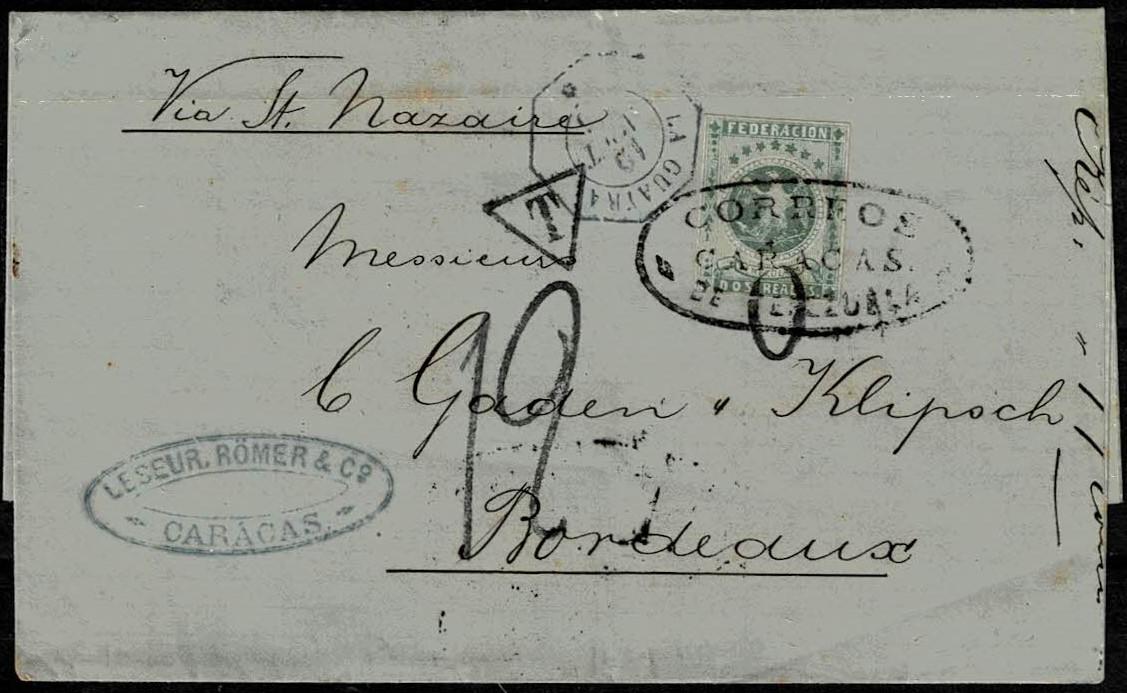 Via St. Nazaire
LA GUAYRA
19
FEDERACION
DOS REALES.
CORREOS
CARACAS.
DE VENEZUELA
T
Messieurs
C Gaden & Klipsch
Bordeaux
LESEUR, RÖMER & Cº
CARÁCAS.